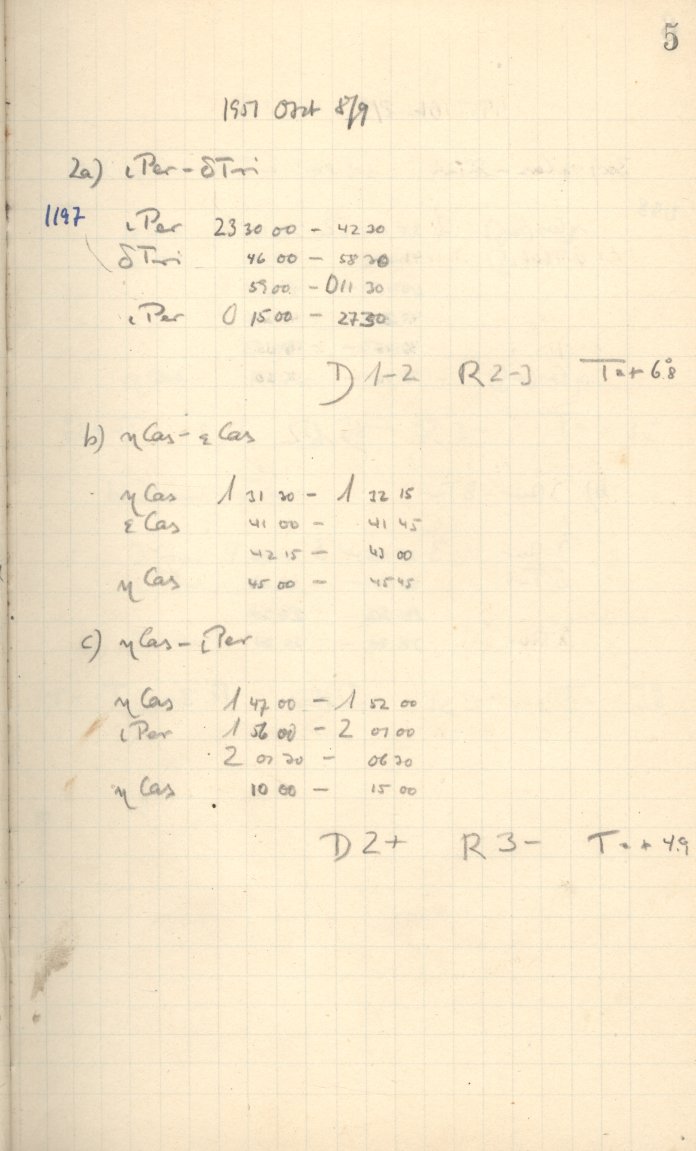 5
1951 Okt 8/9
2a) ι Per - δ Tri
1197
ι Per 23 30 00 - 42 30
δ Tri 46 00 - 58 30
59 00 - 0 11 30
ι Per 0 15 00 - 27 30
D 1-2 R 2-3 T = + 6.8
b) η Cas - ε Cas
η Cas 1 31 30 - 1 32 15
ε Cas 41 00 - 41 45
42 15 - 43 00
η Cas 45 00 - 45 45
c) η Cas - ι Per
η Cas 1 47 00 - 1 52 00
ι Per 1 56 00 - 2 01 00
2 01 30 - 06 30
η Cas 10 00 - 15 00
D 2+ R 3- T = + 4.9